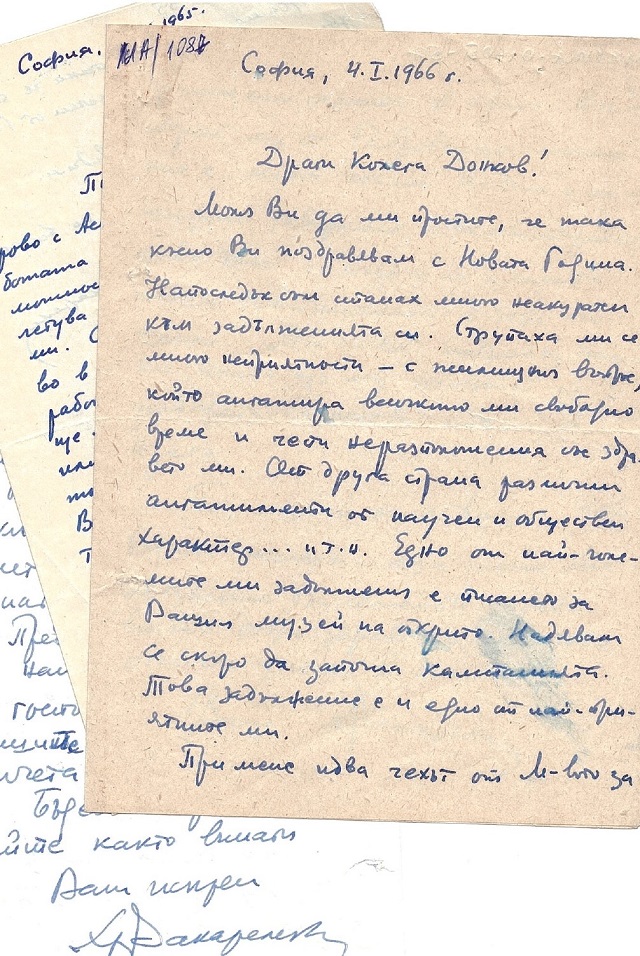 София, 4.I.1966 г.
МА/1087
Драги Колега Донков!
Моля Ви да ми простите, че така
късно Ви поздравявам с Новата Година.
Напоследък съм станах много неакуратен
към задълженията си. Струпаха ми се
много неприятности – с жилищния въпрос,
който ангажира всичкото ми свободно
време и чести неразположения със здра-
вето ми. От друга страна различни
ангажименти от научен и обществен
характер... и т.н. Едно от най-голе-
мите ми задължения е писането за
Вашия музей на открито. Надявам
се скоро да започна кампанията.
Това задължение е и едно от най-при-
ятните ми.
При мене идва чехът от М-вото за
София. 1965.
рово с
ботата
летува
ми.
во в
рабо
ще
В
госто
щите
Бъде
йте както винаги
Ваш искрен
Хр. Вакарелски